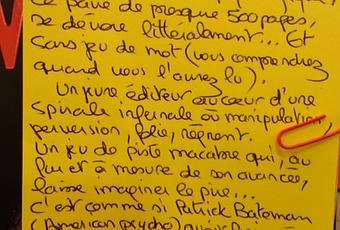 Ce pavé de presque 500 pages,
se dévore littéralement... Et
sans jeu de mot (vous comprendrez
quand vous l'aurez lu).
Un jeune éditeur au coeur d'une
spirale infernale où manipulation,
perversion, folie, règnent.
Un jeu de piste macabre qui, au
fur et à mesure de son avancée,
laisse imaginer le pire...
c'est comme si Patrick Bateman
(American psycho)